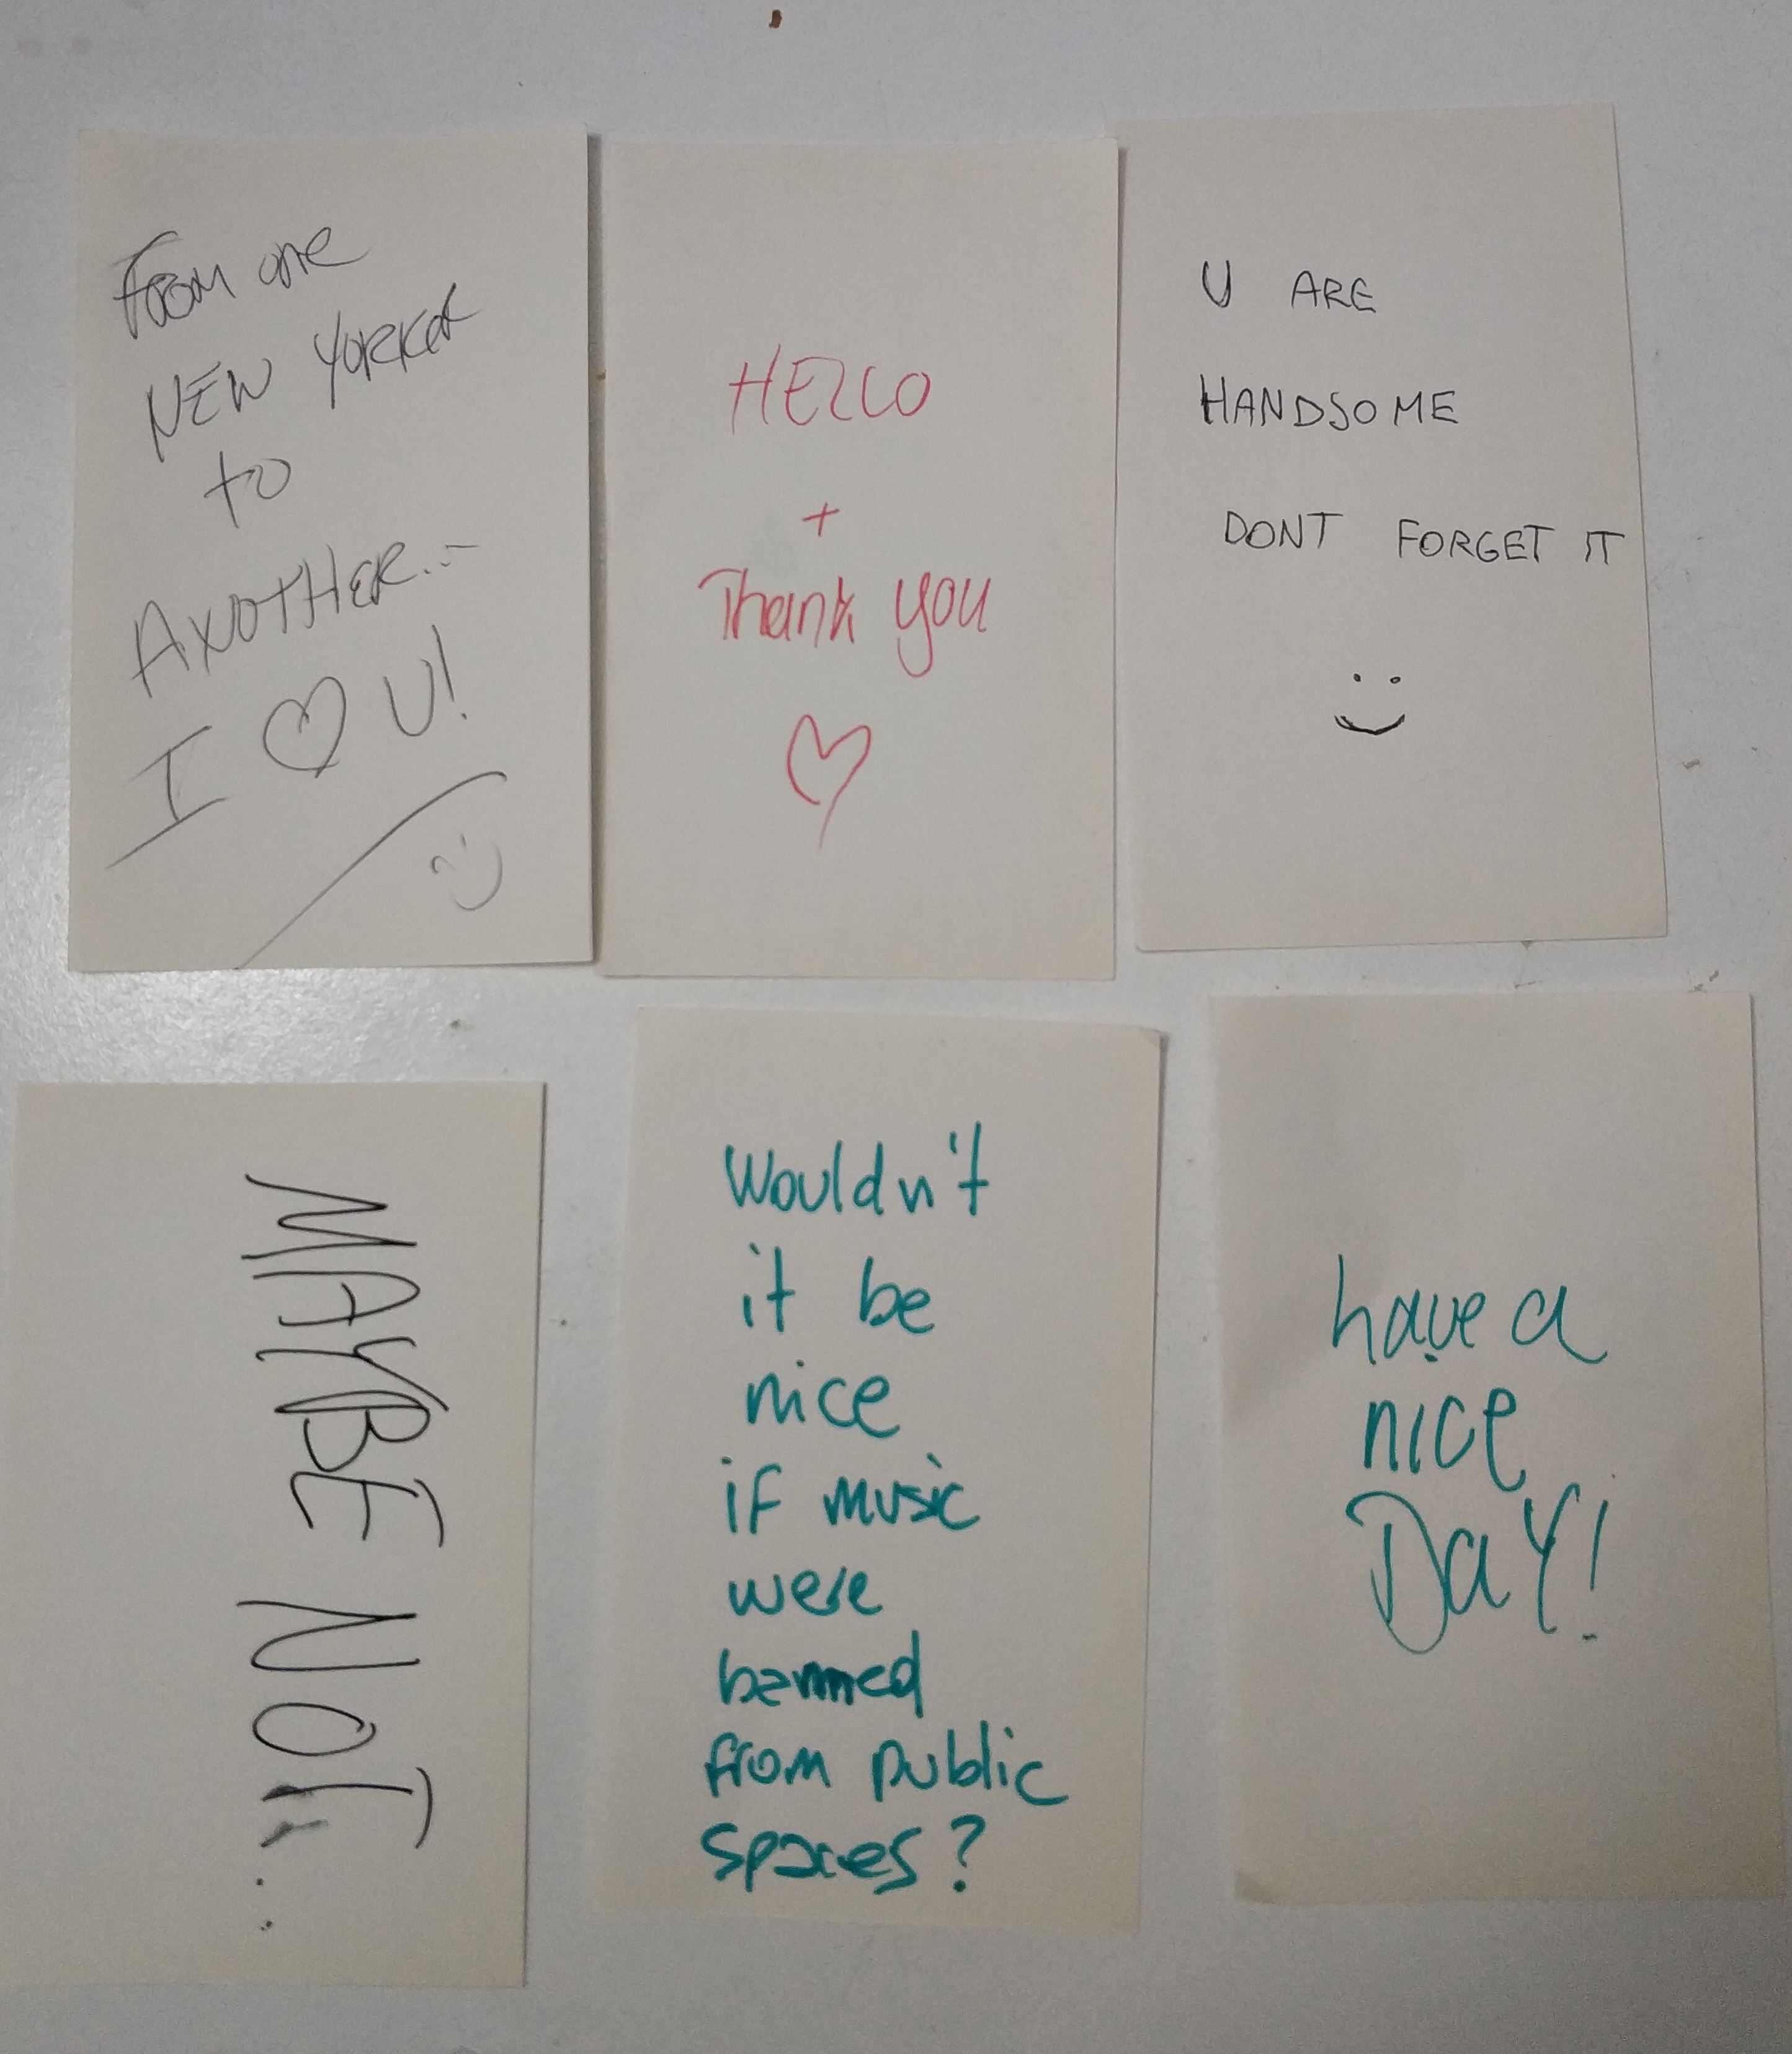 From one
NEW YORKER
to
ANOTHER...
I ♡ U!
HELLO
+
Thank you
♡
U ARE
HANDSOME
DONT FORGET IT
MAYBE NOT...
Wouldn't
it be
nice
if music
were
banned
from public
spaces?
have a
nice
DaY!